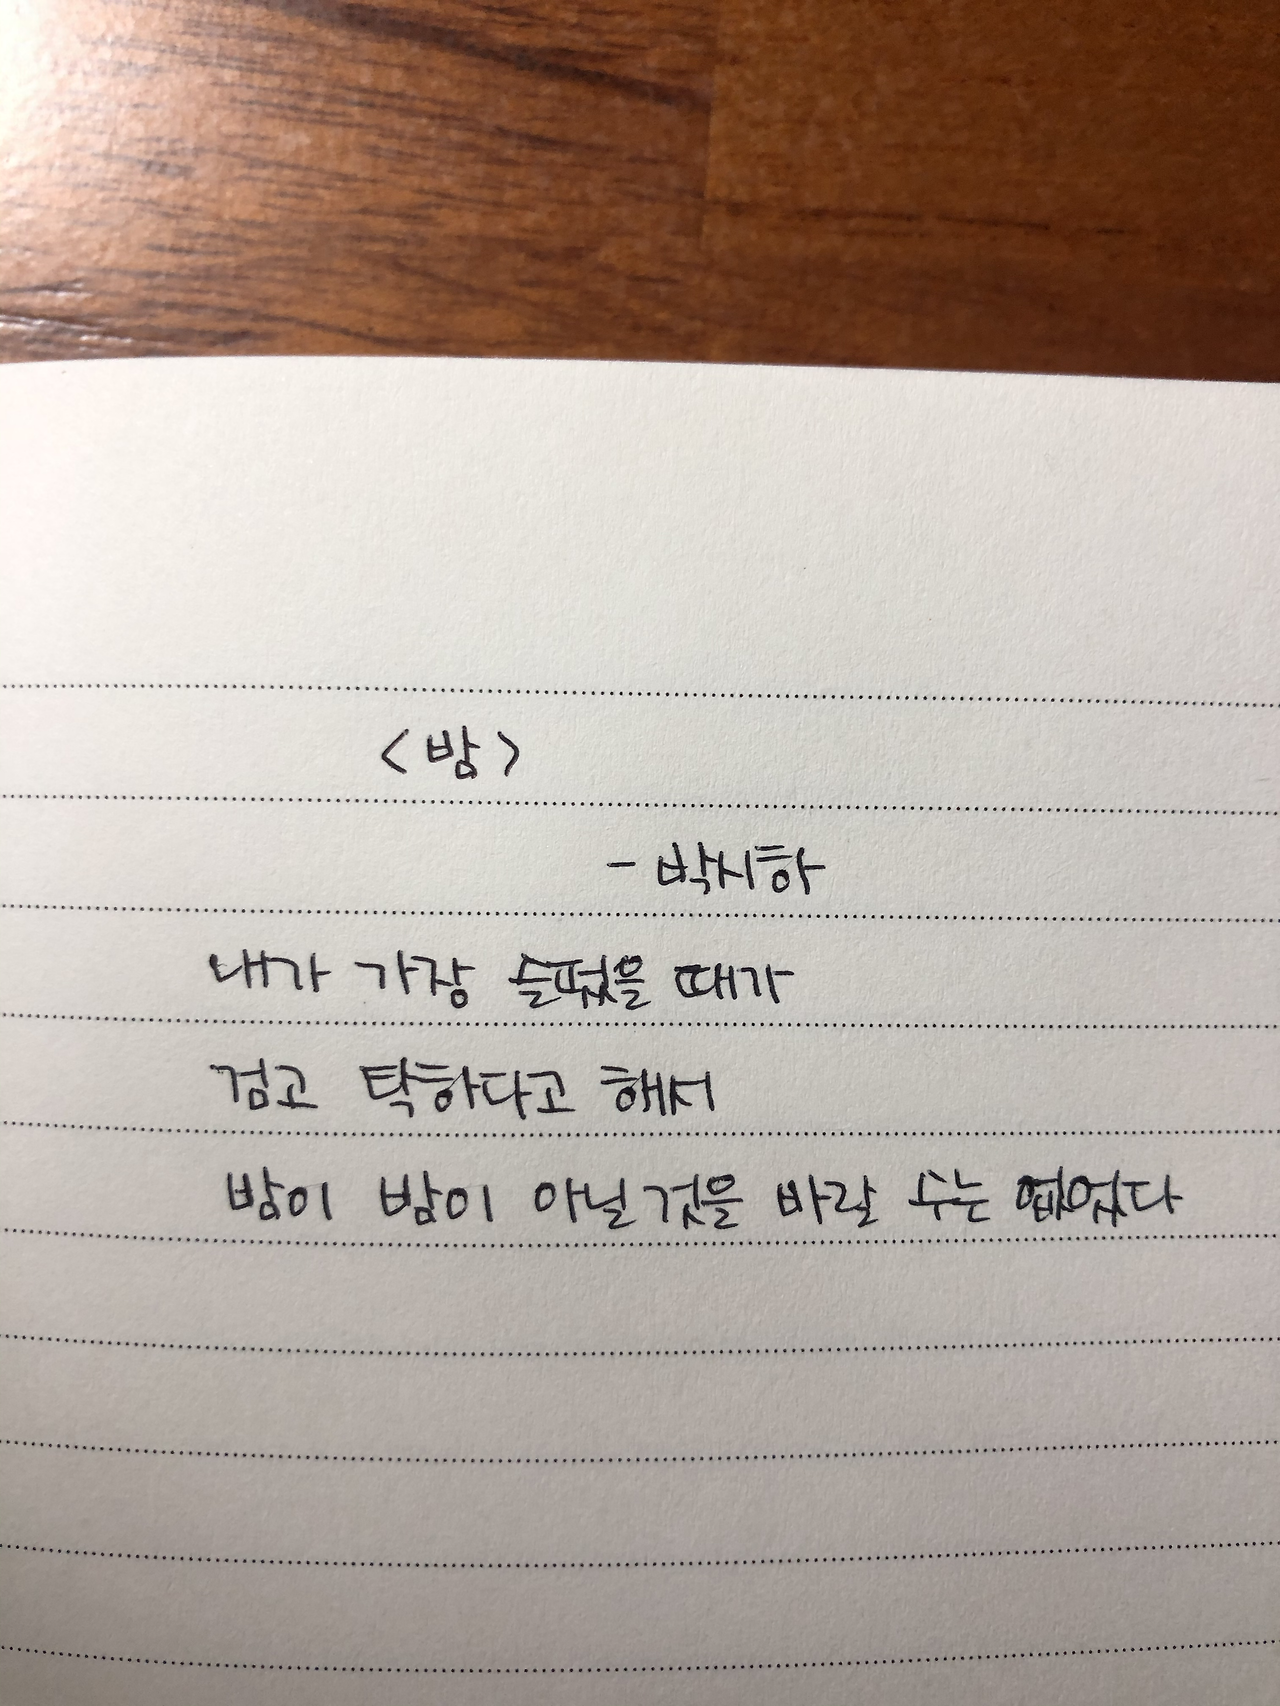 <밤>
- 박시하
내가 가장 슬펐을 때가
검고 탁하다고 해서
밤이 밤이 아닐 것을 바랄 수는 없었다